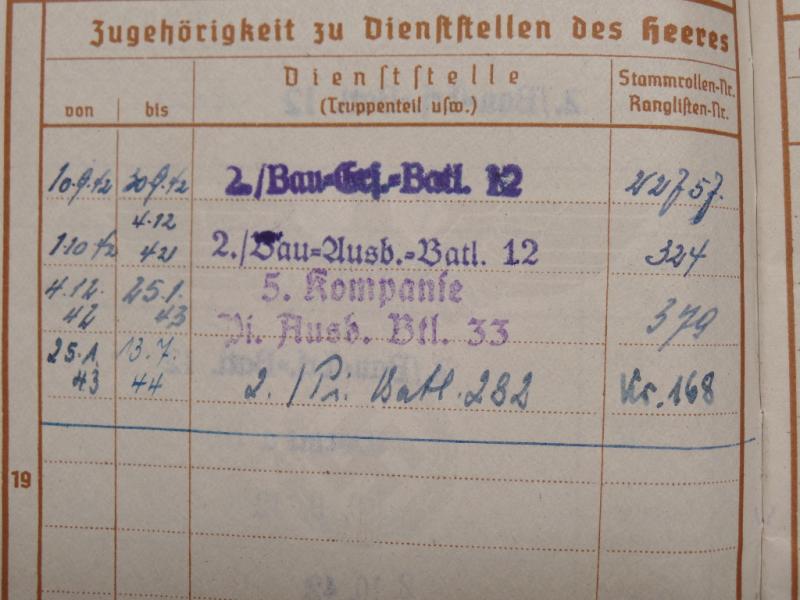 Zugehörigkeit zu Dienststellen des Heeres
von bis Dienststelle (Truppenteil usw.) Stammrollen-Nr. Ranglisten-Nr.
10.9.42 30.9.42 2./Bau-Ers.-Batl. 12
1.10.42 4.12.42 2./Bau-Ausb.-Batl. 12 324
4.12.42 25.1.43 5. Kompanie Pi. Ausb. Btl. 33 379
25.1.43 13.7.44 2./Pi. Batl. 282 Nr. 168
19